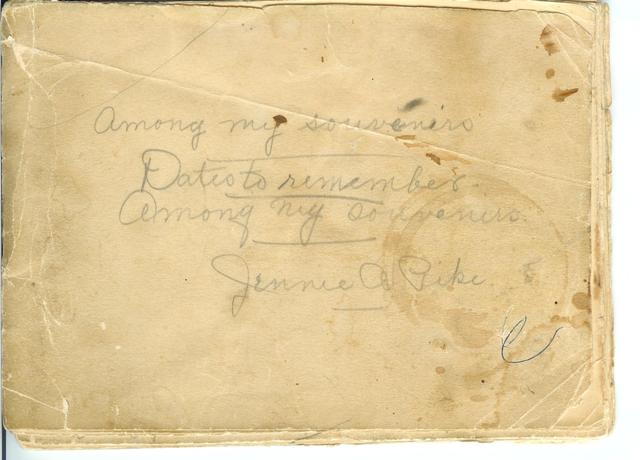 Among my souvenirs
Dates to remember.
Among my souvenirs.
Jennie A Pike.